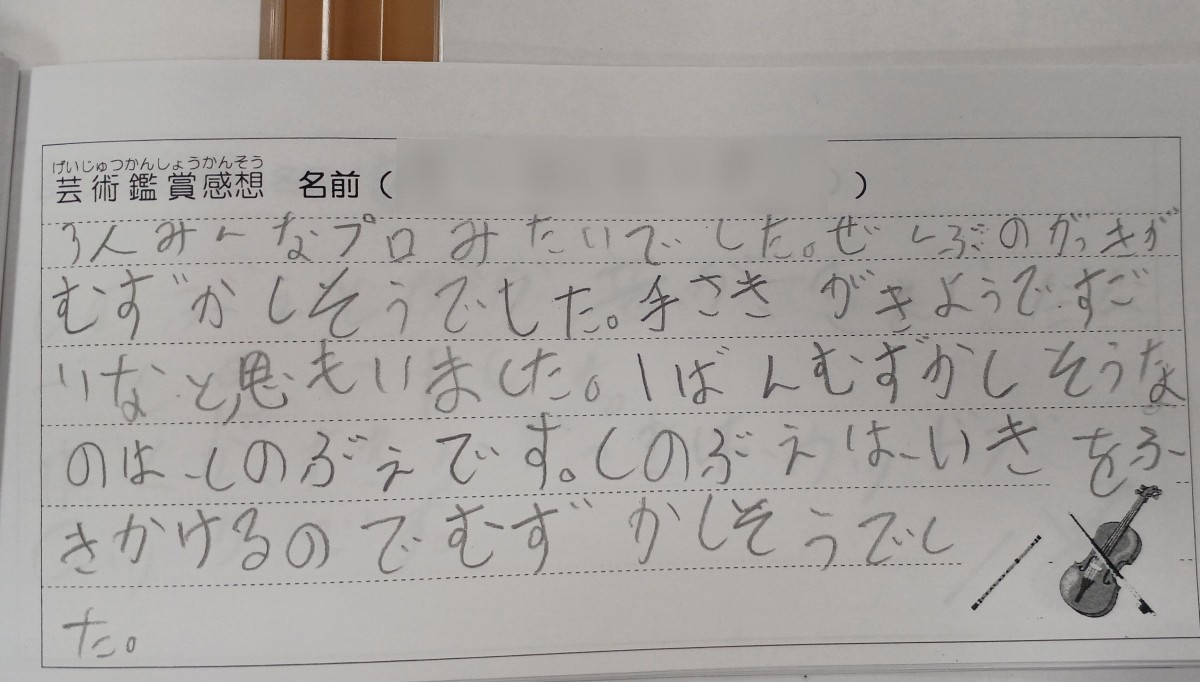 げいじゅつかんしょうかんそう
芸術鑑賞感想 名前( )
3人みんなプロみたいでした。ぜんぶのがっきが
むずかしそうでした。手さきがきようですご
いなと思もいました。1ばんむずかしそうな
のはしのぶえです。しのぶえはいきをふ
きかけるのでむずかしそうでし
た。